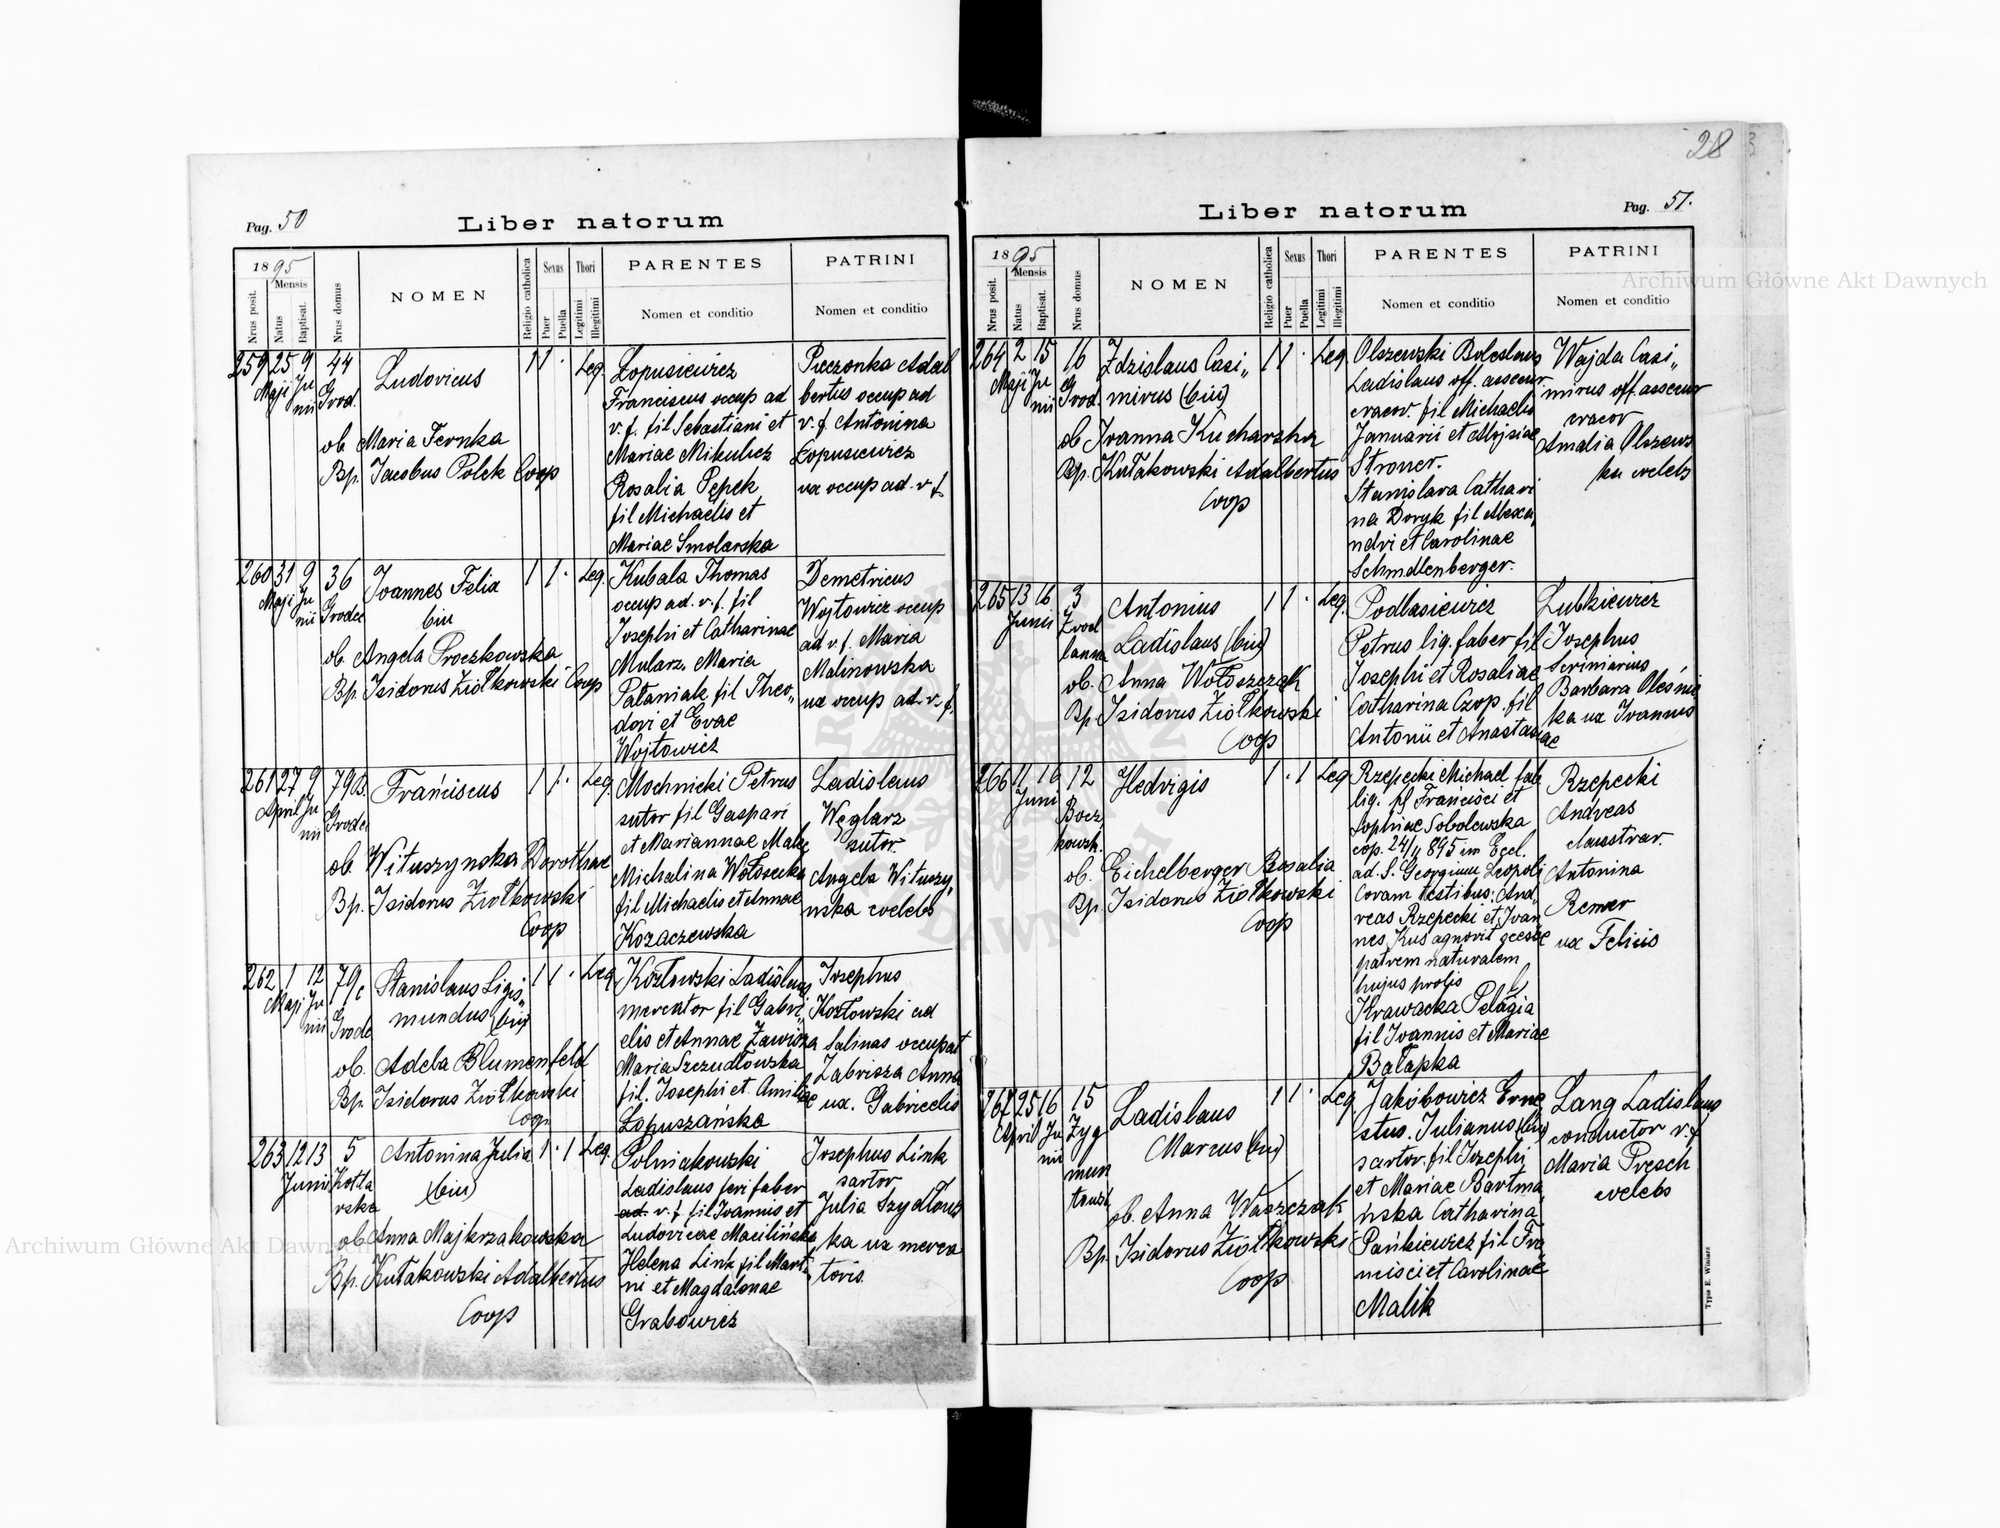 28
Pag. 50
Liber natorum
1895
Nrus posit.
Mensis
Natus
Baptisat.
Nrus domus
NOMEN
Religio catholica
Sexus
Puer
Puella
Thori
Legitimi
Illegitimi
PARENTES
Nomen et conditio
PATRINI
Nomen et conditio
259 25 9 44
Maji Ju
nii
Grod.
Ludovicus
1 1 · Leg.
ob Maria Fernka
Bp. Jacobus Polek Coop
Łopusiewicz
Franciscus occup ad
v. f. fil Sebastiani et
Mariae Mikulicz
Rosalia Pępek
fil Michaelis et
Mariae Smolarska
Pieczonka Adal
bertus occup ad
v. f. Antonina
Łopusiewicz
ux occup ad. v. f.
260 31 9 36
Maji Ju
nii
Grodec
Joannes Felix
bin
1 1 · Leg.
ob. Angela Proczkowska
Bp. Isidorus Ziółkowski Coop
Kubala Thomas
occup ad. v. f. fil
Josephi et Catharinae
Mularz, Maria
Pataniak fil Theo„
dori et Evae
Wojtowicz
Demetrius
Wojtowicz occup
ad v. f. Maria
Malinowska
ux occup ad. v. f.
261 27 9 79B.
April Ju
nii
Grodec
Franciscus
1 1 · Leg.
ob. Wituszynska Dorothae
Bp. Isidorus Ziółkowski
Coop
Mochnicki Petrus
sutor fil Gaspari
et Mariannae Malec
Michalina Wołosecka
fil Michaelis et Annae
Kozaczewska
Ladislaus
Węglarz
sutor
Angela Wituszy„
nska coelebs
262 1 12 79c
Maji Ju
nii
Grodc
Stanislaus Sigis„
mundus (bin)
1 1 · Leg.
ob. Adela Blumenfeld
Bp. Isidorus Ziółkowski
Coop
Kozłowski Ladislaus
mercator fil Gabri„
elis et Annae Zawisza
Maria Szczudłowska
fil. Josephi et Amiliae
Łopuszańska
Josephus
Kozłowski ad
salinas occupat
Zabrisza Anna
ux. Gabrielis
263 12 13 5
Junii
Kotla
rska
Antonina Julia
(bin)
1 · 1 Leg.
ob Anna Majkrzakowska
Bp. Kułakowski Adalbertus
Coop
Polniakowski
Ladislaus feri faber
ad. v. f fil Joannis et
Ludovicae Macilińska
Helena Link fil Marti
ni et Magdalenae
Grabowicz
Josephus Link
sartor
Julia Szydłows
ka ux merca
toris.
Liber natorum
Pag. 51.
1895
Nrus posit.
Mensis
Natus
Baptisat.
Nrus domus
NOMEN
Religio catholica
Sexus
Puer
Puella
Thori
Legitimi
Illegitimi
PARENTES
Nomen et conditio
PATRINI
Nomen et conditio
264 2 15 16
Maji Ju
nii
Grod.
Zdzislaus Casi„
mirus (bin)
1 1 · Leg
ob Joanna Kucharska
Bp. Kułakowski Adalbertus
Coop
Olszewski Boleslaus
Ladislaus off. assecur.
cracov. fil Michaelis
Januarii et Aloysiae
Stroner.
Stanislava Cathari
na Doryk fil Alexa„
ndri et Carolinae
Schmdlenberger.
Wajda Casi„
mirus off. assecur
cracov
Amalia Olszews
ka coelebs
265 13 16 3
Junii
Antonius
Ladislaus (bin)
1 1 · Leg.
ob. Anna Wołoszczak
Bp. Isidorus Ziółkowski
Coop
Podlasiewicz
Petrus lig. faber fil
Josephi et Rosaliae
Catharina Czop. fil
Antonii et Anastasiae
Lubkiewicz
Josephus
scrimarius
Barbara Oleśnic
ka ux Joannis
266 11 16 12
Junii
Bocz
kowsk.
Hedvigis
1 · 1 Leg
ob. Eichelberger Rosalia
Bp Isidorus Ziółkowski
Coop
Rzepecki Michael fab
lig. fil Francisci et
Sophiae Sobolewska
cop. 24/11 895 in Eccl.
ad. S. Georgium Leopoli
Coram testibus: And„
reas Rzepecki et Joan
nes Kus agnovit se esse
patrem naturalem
hujus prolis
Krawacka Pelagia
fil Joannis et Mariae
Bałapka
Rzepecki
Andreas
claustrar.
Antonina
Remer
ux Felicis
267 25 16 15
April Ju
nii
Zyg
mun
towsk
Ladislaus
Marcus (bin)
1 1 · Leg
ob. Anna Waszczak
Bp. Isidorus Ziółkowski
Coop
Jakóbowicz Erne
stus. Julianus (bin)
sartor. fil Josephi
et Mariae Bartma„
ńska Catharina
Pańkiewicz fil Fra
ncisci et Carolinae
Malik
Lang Ladislaus
conductor v. f
Maria Presch
coelebs
Typis E. Winiarz
Archiwum Główne Akt Dawnych
Archiwum Główne Akt Dawnych